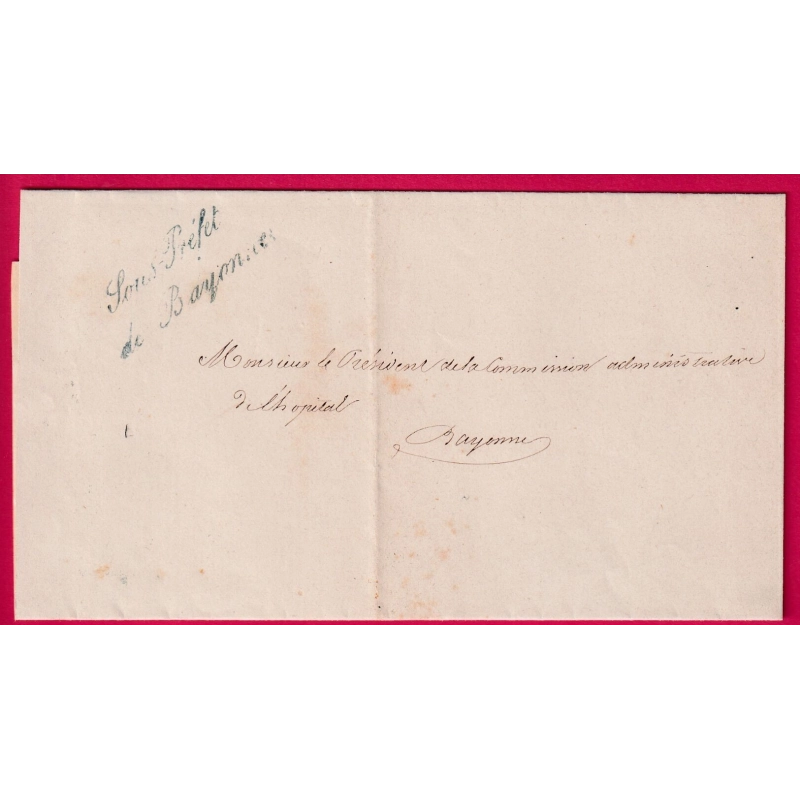 Sous-Préfet
de Bayonne
Monsieur le Président de la Commission administrative
De l'hopital
Bayonne